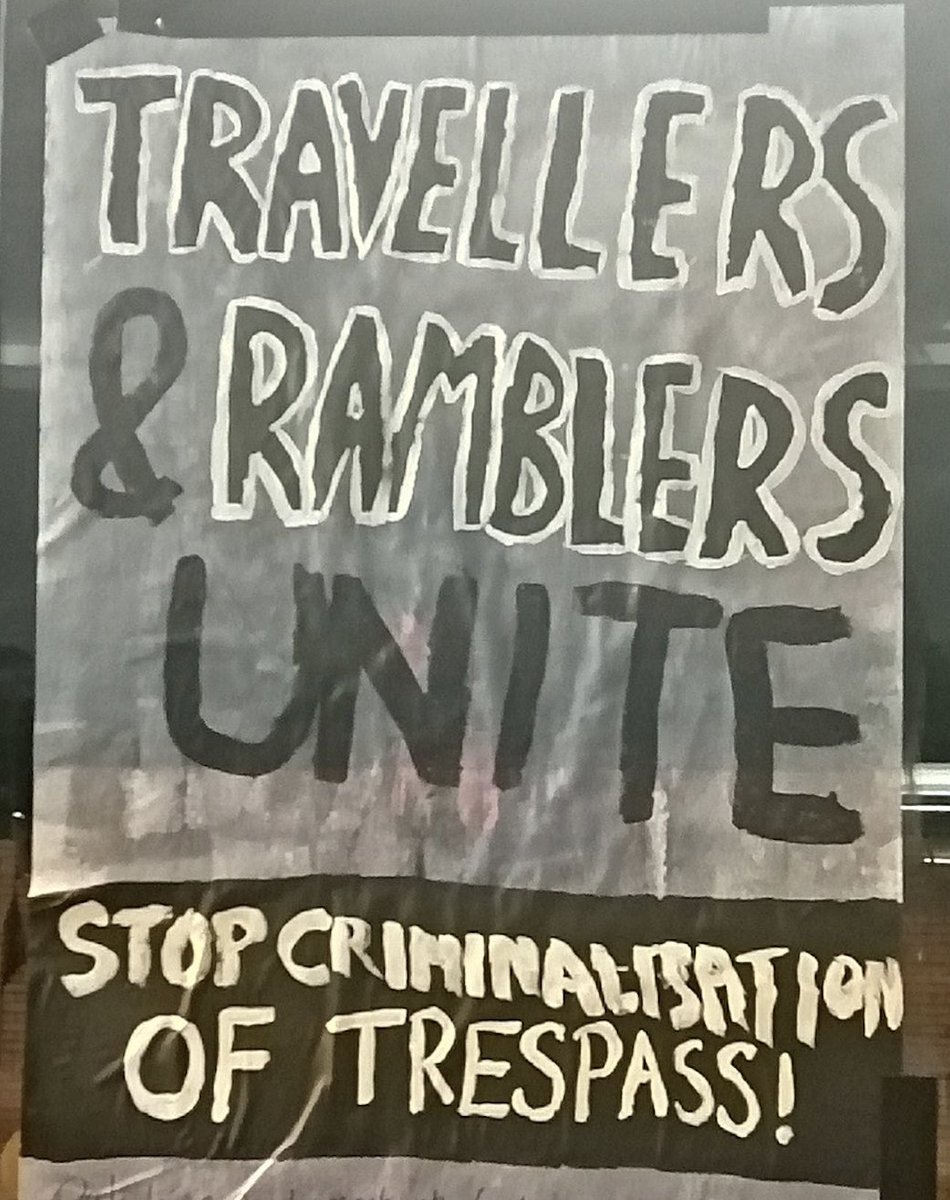 TRAVELLERS
& RAMBLERS
UNITE
STOP CRIMINALISATION
OF TRESPASS!